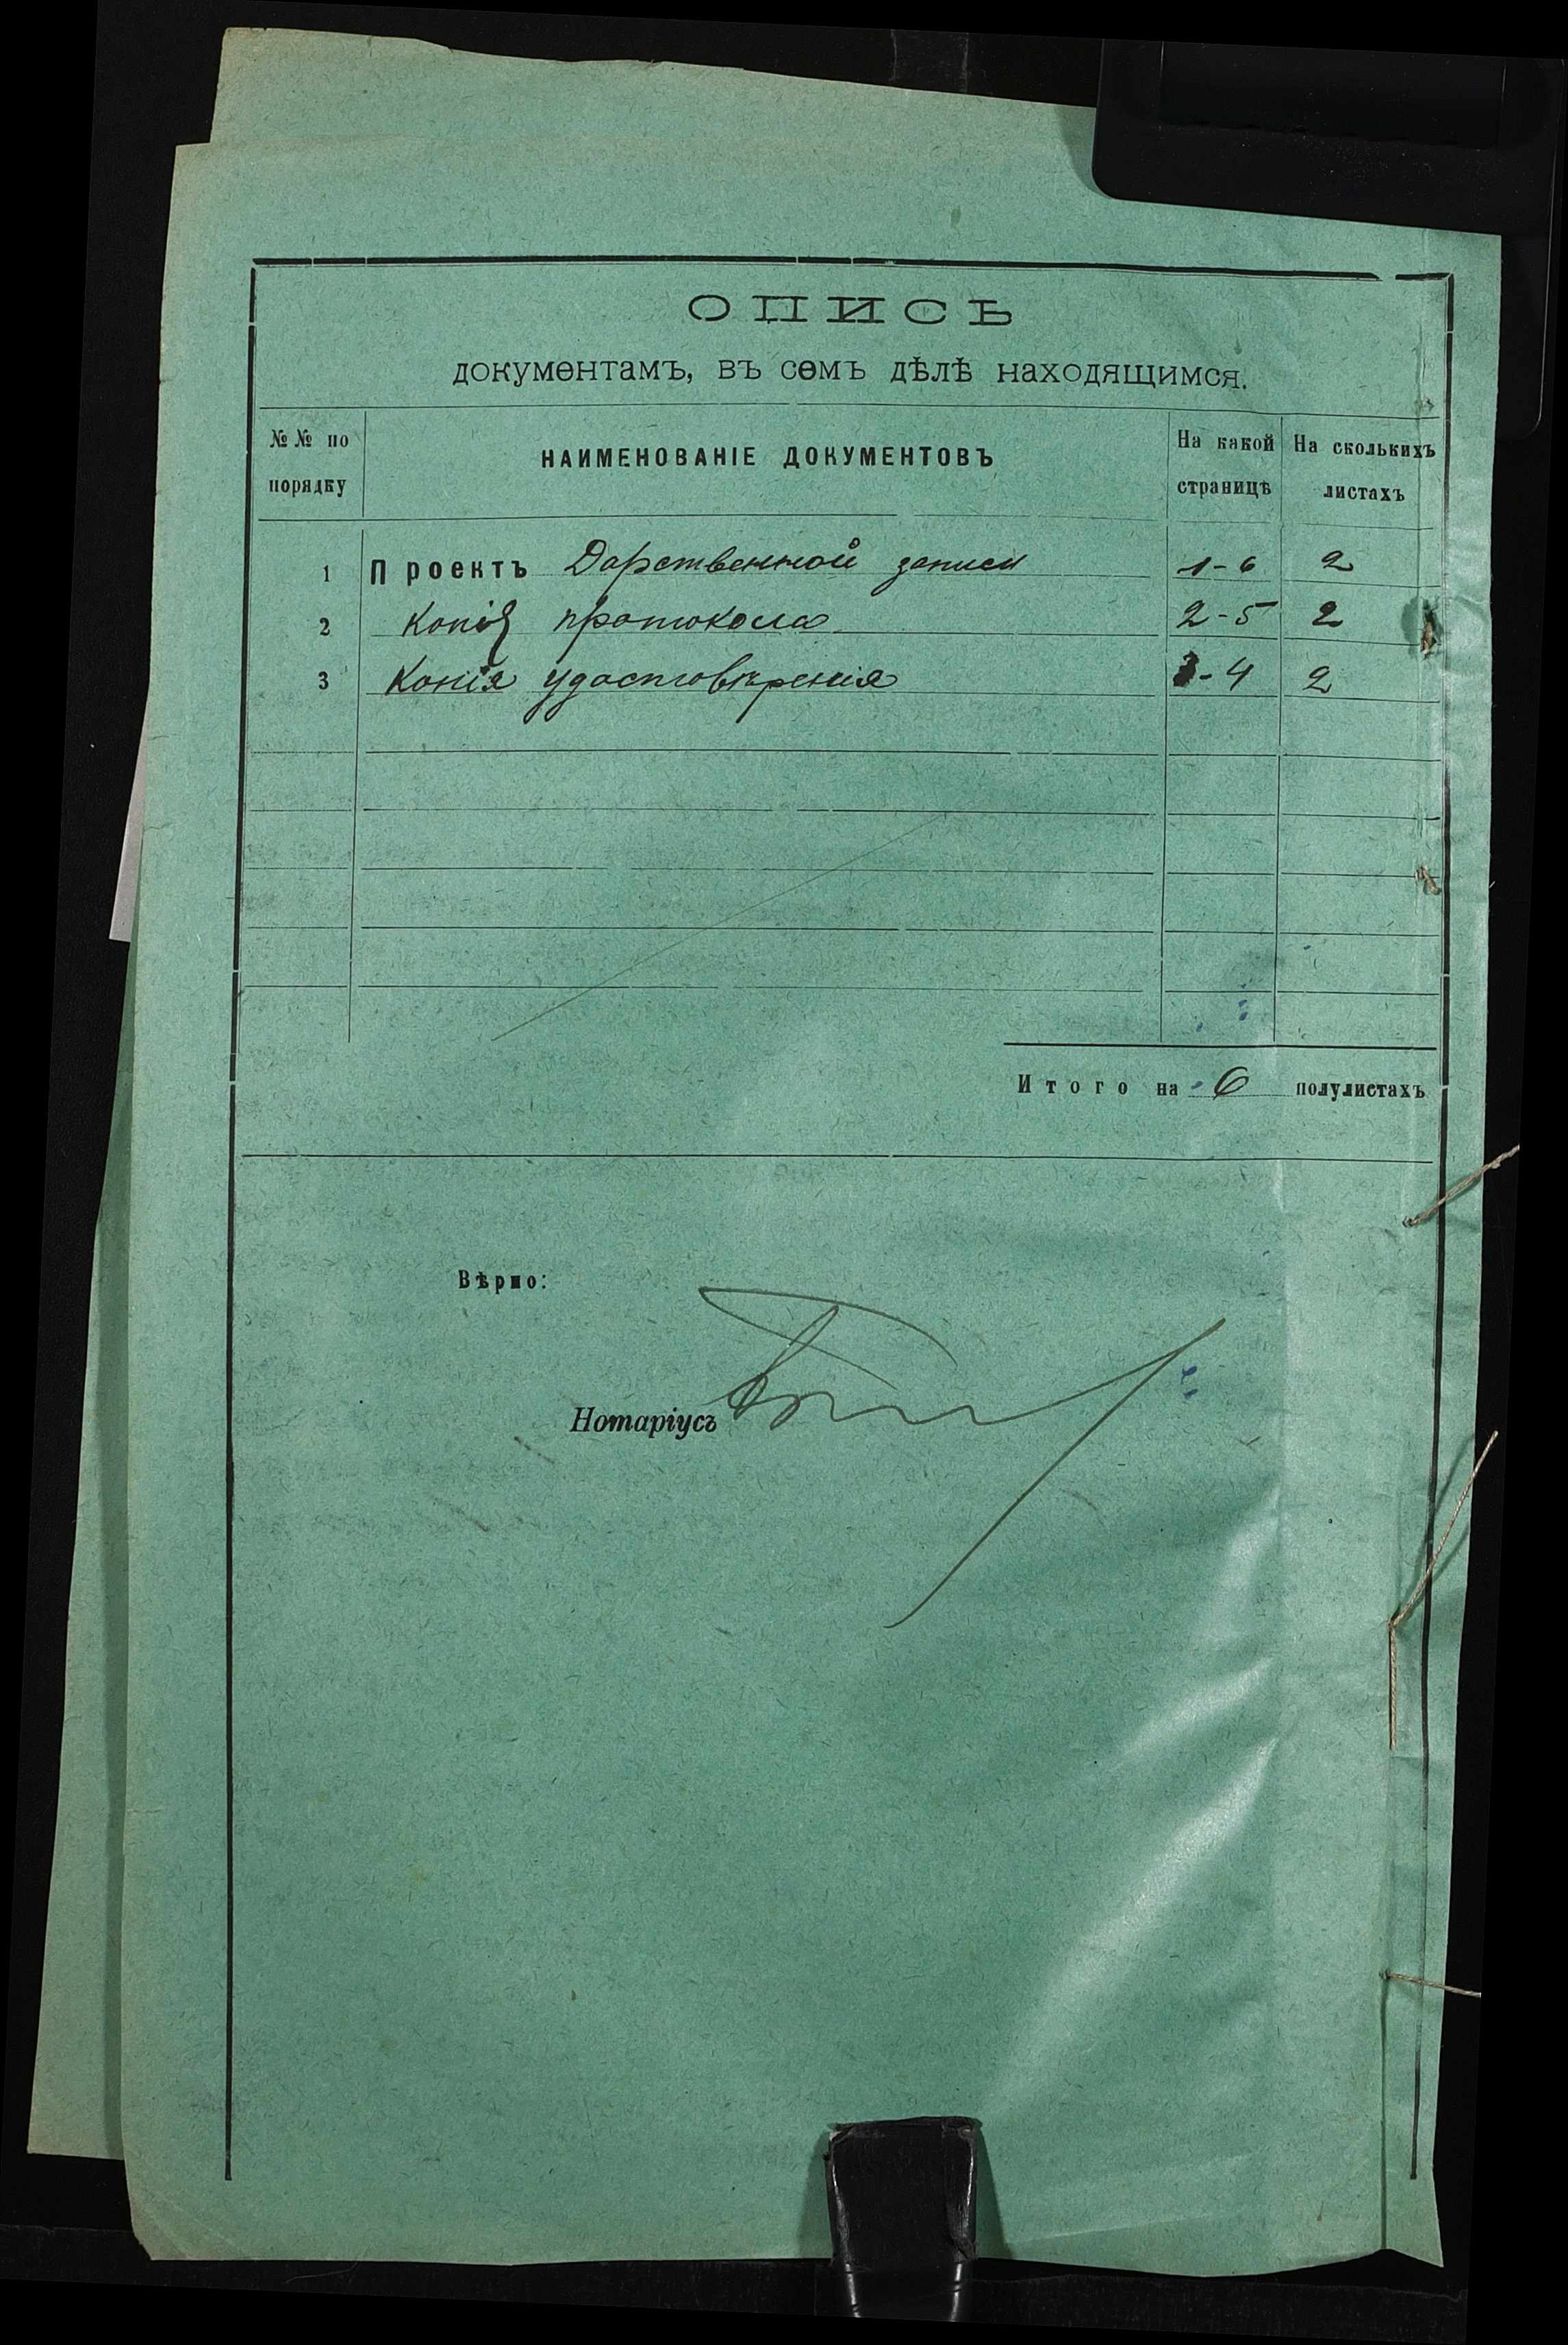 ОПИСЬ
документамъ, въ семъ дѣлѣ находящимся.
№№ по порядку НАИМЕНОВАНІЕ ДОКУМЕНТОВЪ На какой страницѣ На сколькихъ листахъ
1 Проектъ Дарственной записи 1-6 2
2 Копія протокола 2-5 2
3 Копія удостовѣренія 3-4 2
Итого на 6 полулистахъ
Вѣрно:
Нотаріусъ